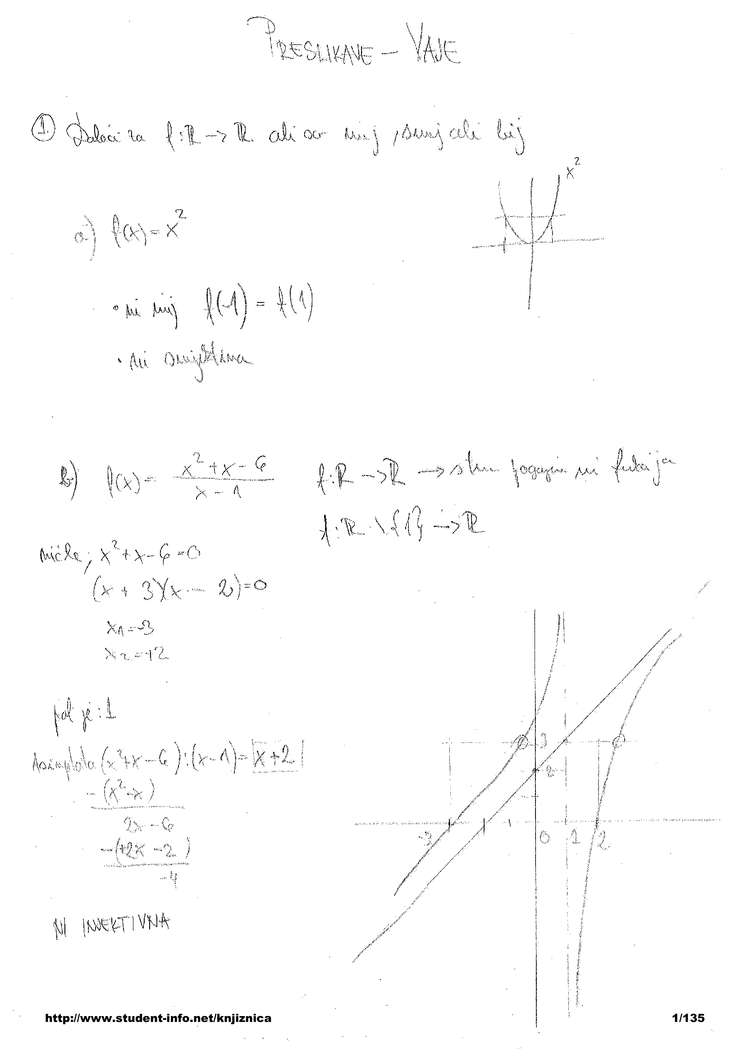 PRESLIKAVE – VAJE
① Določi za f: ℝ → ℝ ali so inj, surj ali bij
x²
a) f(x) = x²
• ni inj f(-1) = f(1)
• ni surjektivna
b) f(x) = (x² + x - 6)/(x - 1) f: ℝ → ℝ → s tem pogojem ni funkcija
f: ℝ \ {1} → ℝ
ničle; x² + x - 6 = 0
(x + 3)(x - 2) = 0
x₁ = -3
x₂ = +2
pol je: 1
Asimptota (x² + x - 6) : (x - 1) = x + 2
- (x² - x)
2x - 6
- (+2x - 2)
-4
NI INJEKTIVNA
3
2
-3 0 1 2
http://www.student-info.net/knjiznica 1/135